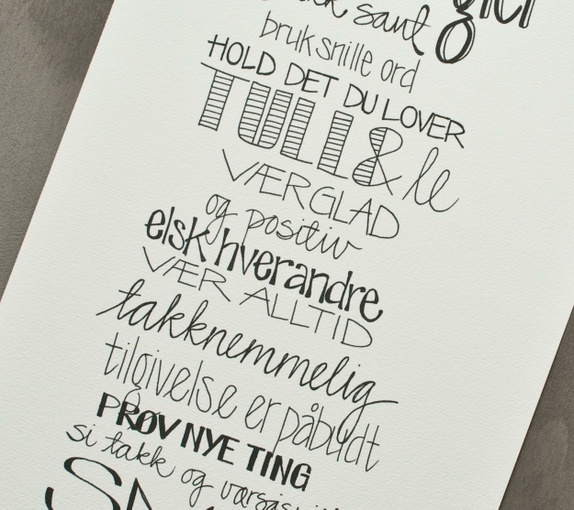 sant
bruk snille ord
HOLD DET DU LOVER
TULL & le
VÆR GLAD
og positiv
elsk hverandre
VÆR ALLTID
takknemmelig
tilgivelse er påbudt
PRØV NYE TING
si takk og